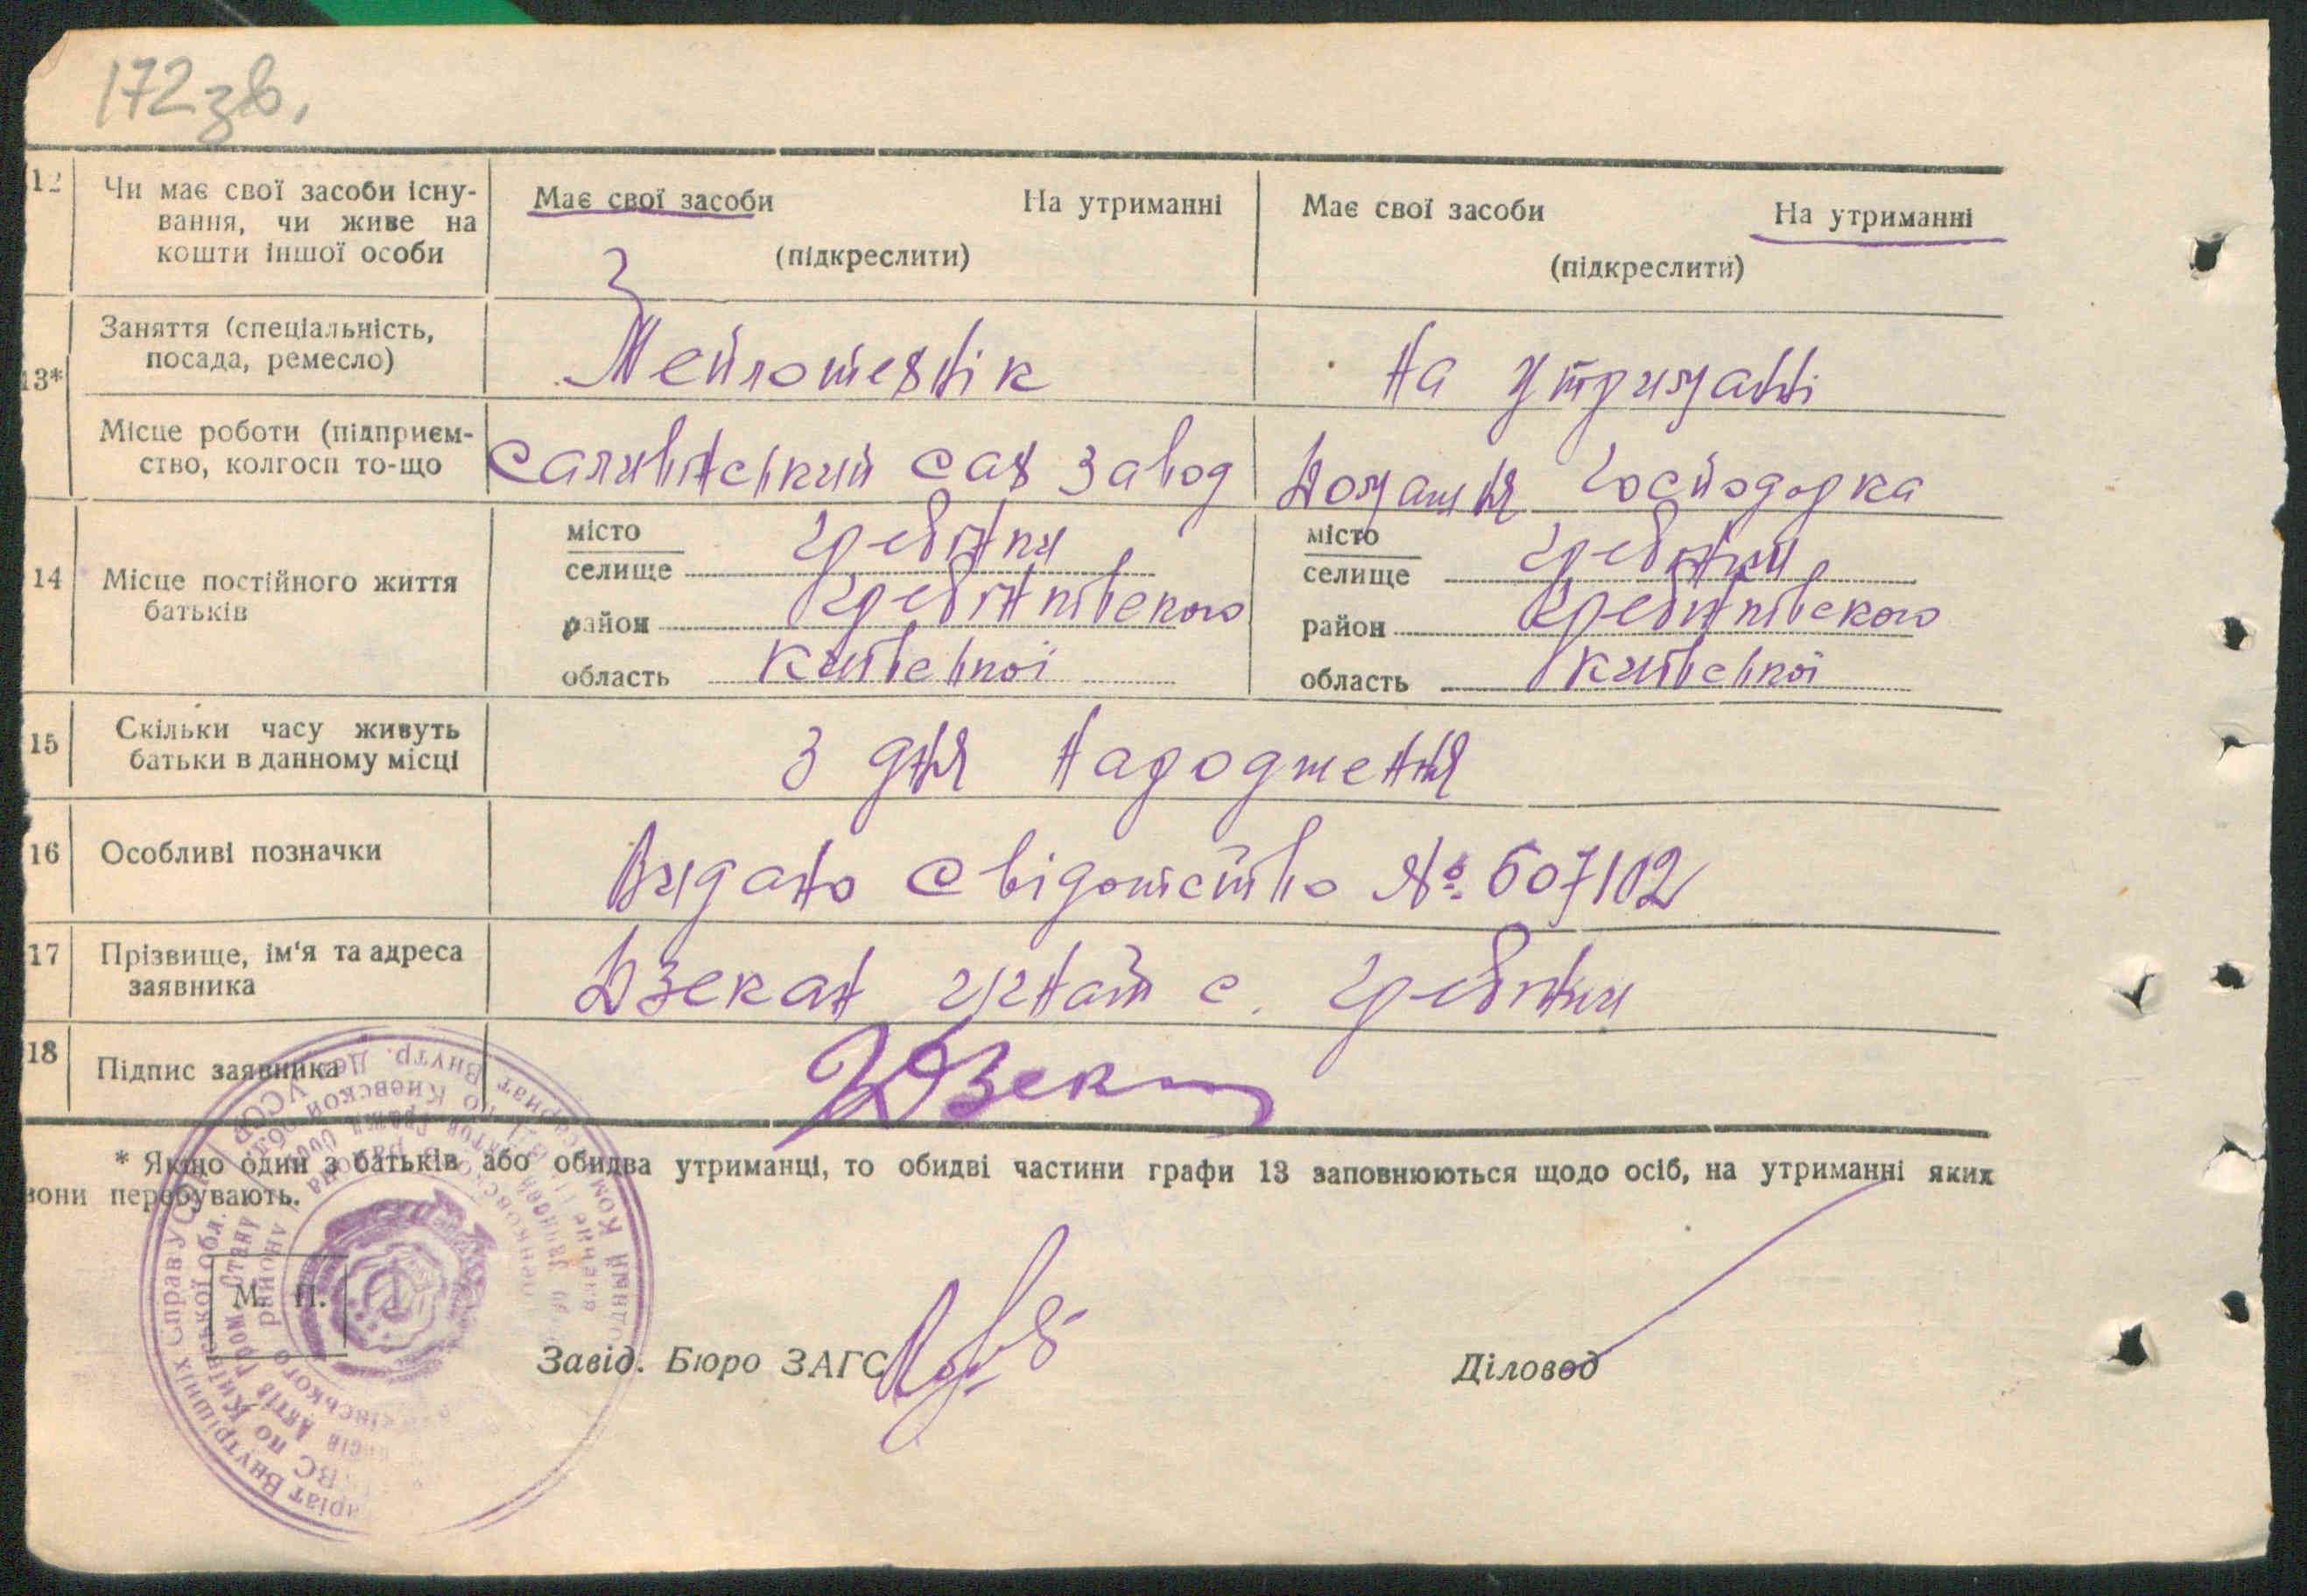 172 зв.
12 Чи має свої засоби існу- Має свої засоби На утриманні Має свої засоби На утриманні
вання, чи живе на
кошти іншої особи (підкреслити) (підкреслити)
Заняття (спеціальність,
13* посада, ремесло) Теплотехнік На утриманні
Місце роботи (підприєм-
ство, колгосп то-що Саливнський сах завод Домашня господорка
14 Місце постійного життя
батьків
місто
селище Гребінки
район Гребінківского
область Київської
місто
селище Гребінки
район Гребінківского
область Київської
15 Скільки часу живуть
батьки в данному місці З дня народження
16 Особливі позначки Видано свідотство № 607102
17 Прізвище, ім'я та адреса
заявника Дзекан Гнат с. Гребінки
18 Підпис заявника Дзекан
* Якщо один з батьків або обидва утриманці, то обидві частини графи 13 заповнюються щодо осіб, на утриманні яких
вони перебувають.
М. П.
Завід. Бюро ЗАГС Діловод